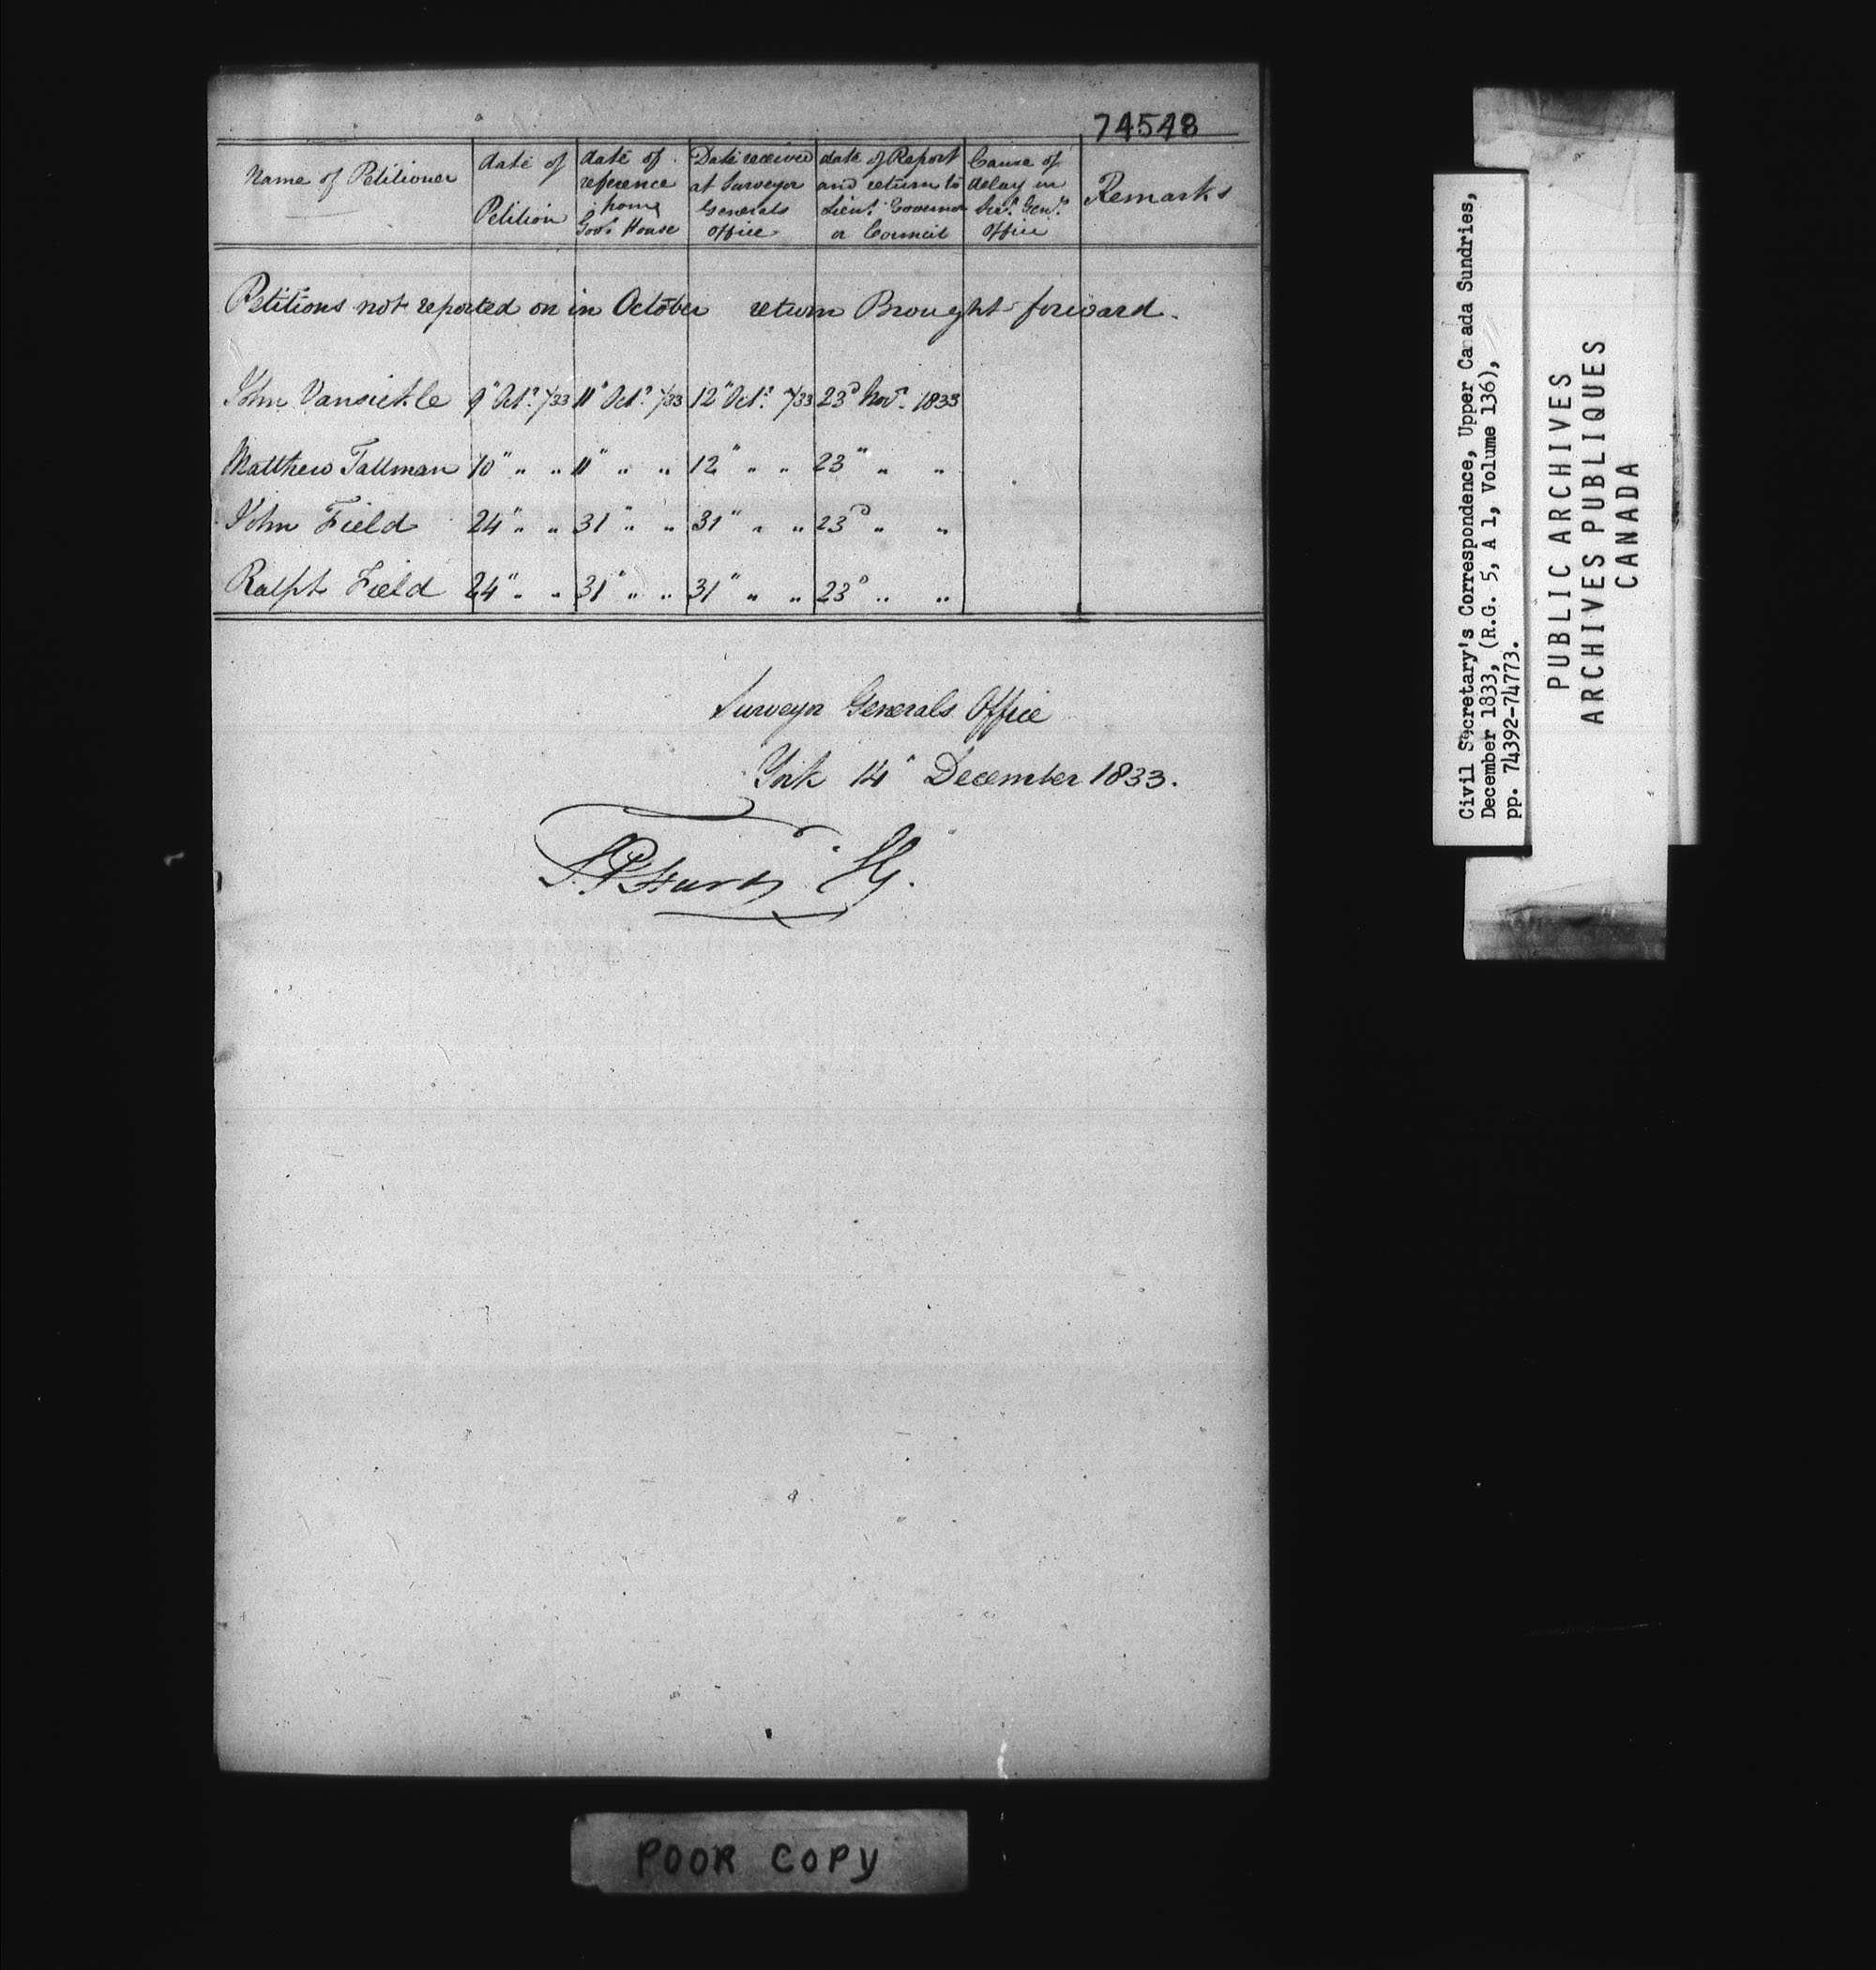 74548
Name of Petitioner | date of Petition | date of reference from Govt House | Date received at Surveyor Generals Office | date of Report and return to Lieut Governor or Council | Cause of delay in Surr Genls Office | Remarks
Petitions not reported on in October return Brought forward.
John Vansickle | 9" Octr /33 | 11" Octr /33 | 12" Octr /33 | 23d Novr 1833
Matthew Tallman | 10" " " | 11" " " | 12" " " | 23" " "
John Field | 24" " " | 31" " " | 31" " " | 23d " "
Ralph Field | 24" " " | 31" " " | 31" " " | 23d " "
Surveyor Generals Office
York 14" December 1833.
S. P. Hurd SG.
Civil Secretary's Correspondence, Upper Canada Sundries,
December 1833, (R.G. 5, A 1, Volume 136),
pp. 74392-74773.
PUBLIC ARCHIVES
ARCHIVES PUBLIQUES
CANADA
POOR COPY